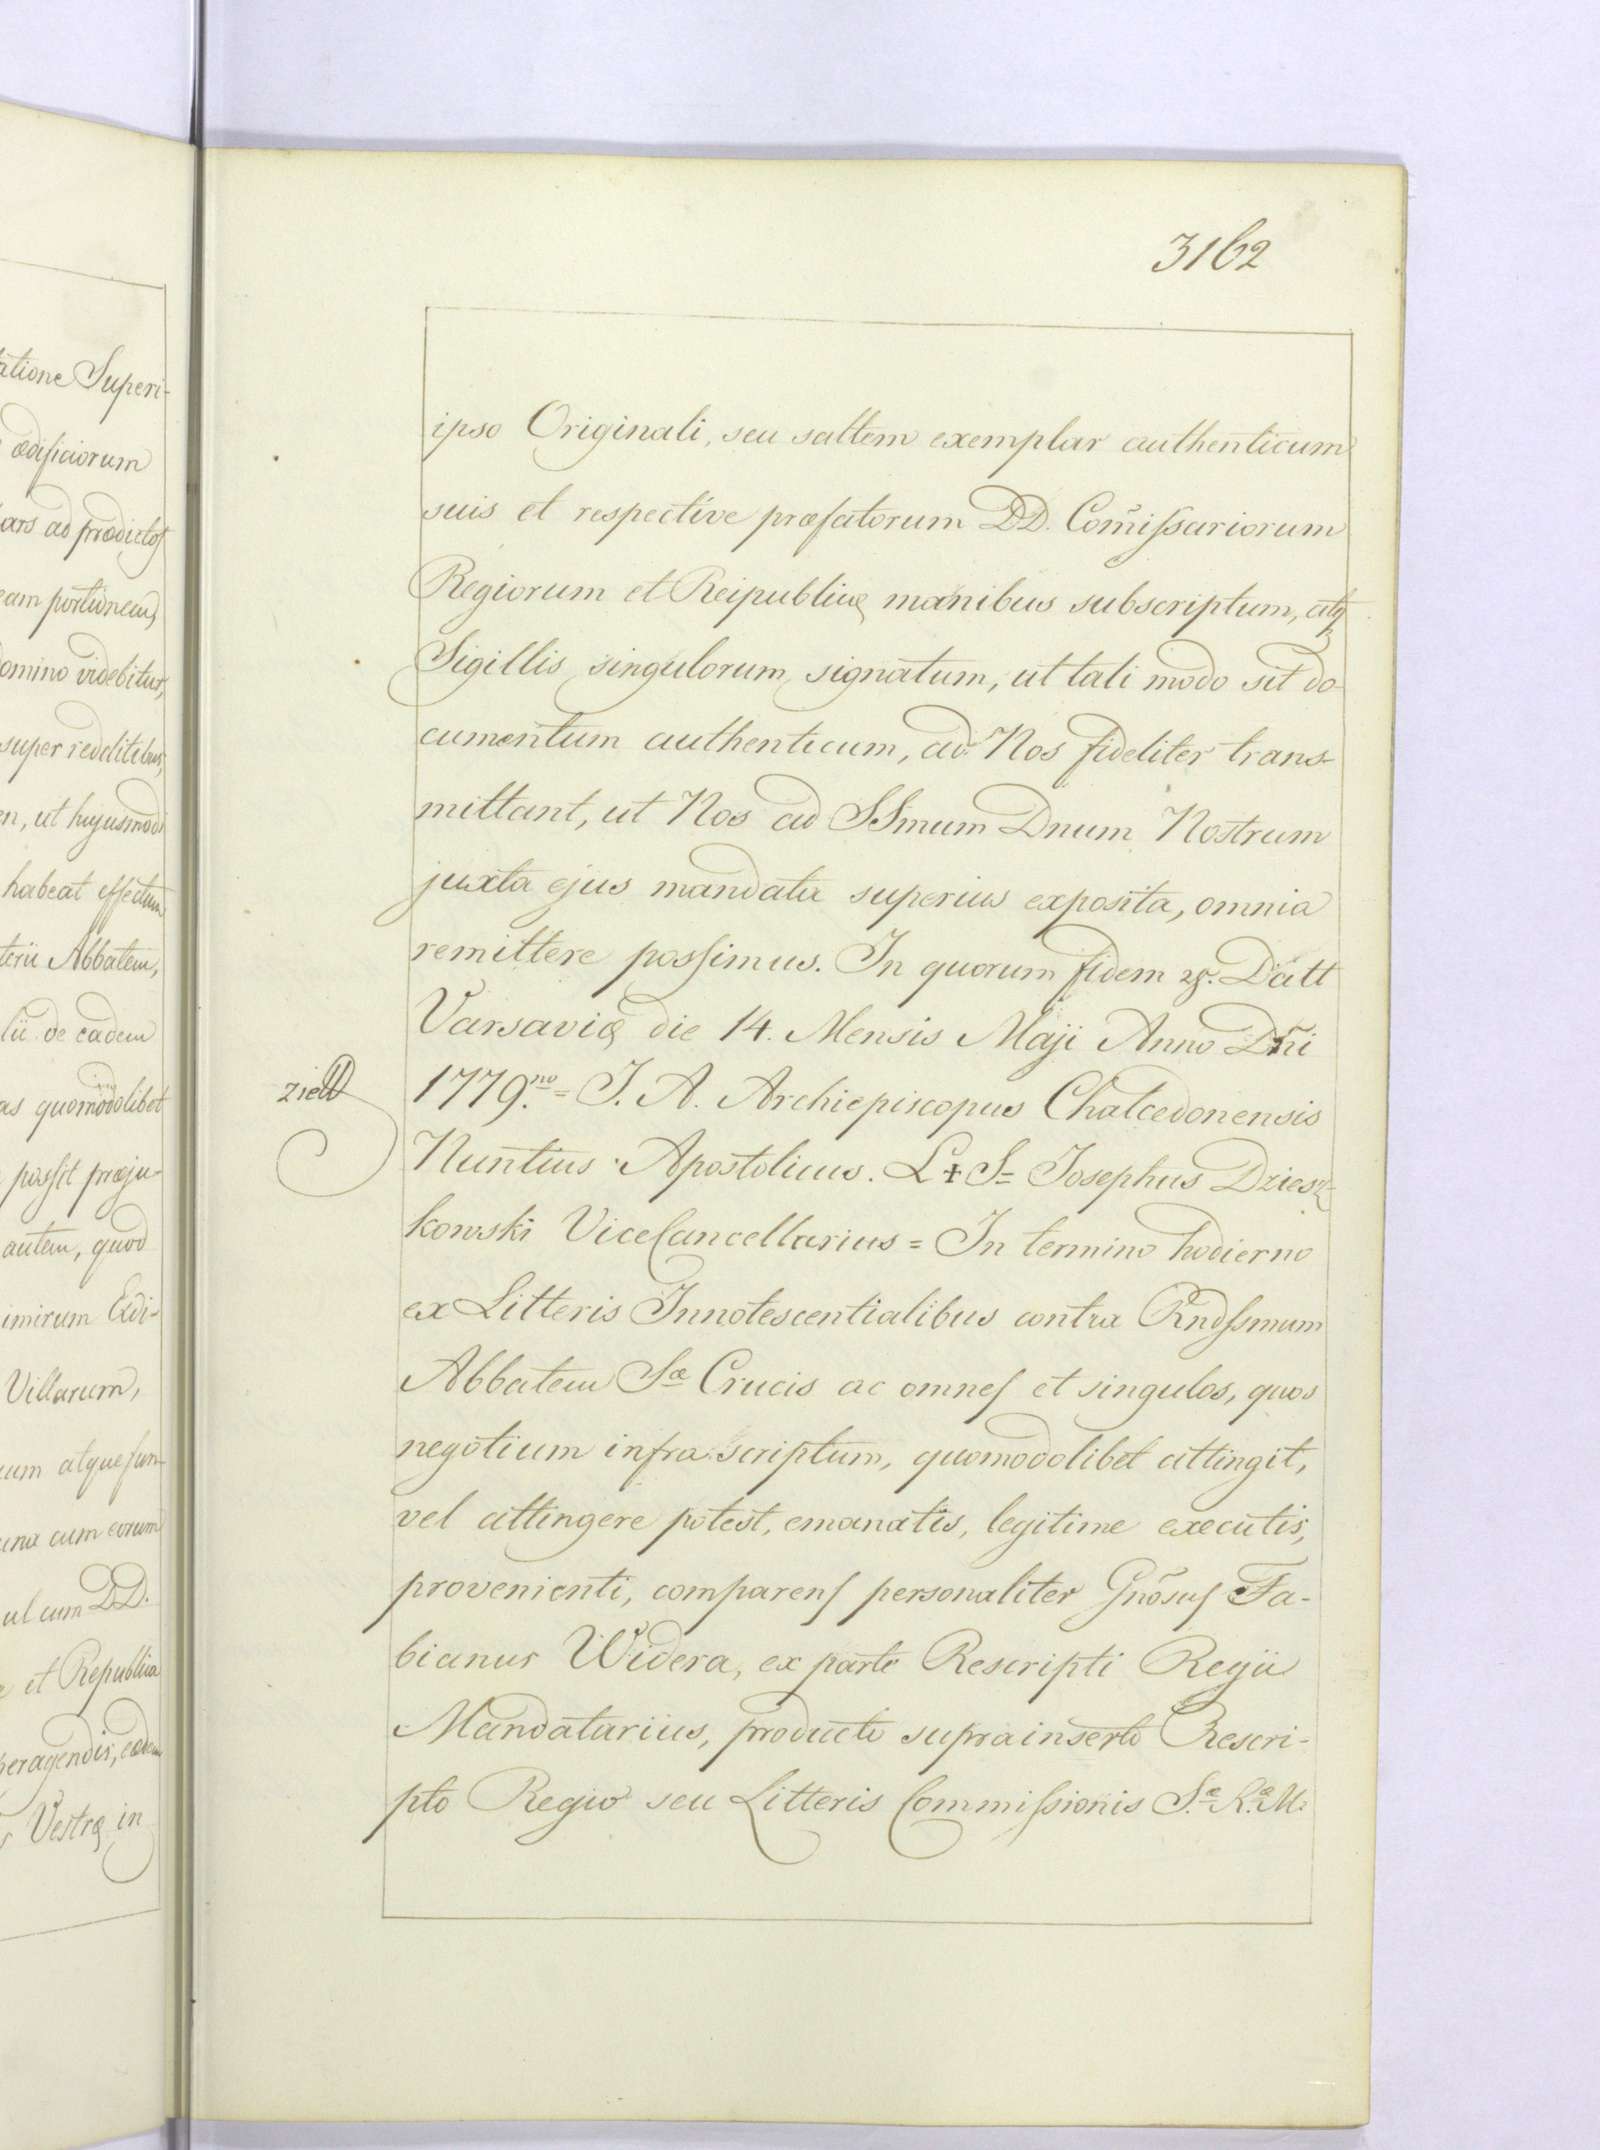 3162
ipso Originali, seu saltem exemplar authenticum
suis et respective præfatorum DD. Com̃issariorum
Regiorum et Reipublicæ manibus subscriptum, atq
Sigillis singulorum signatum, ut tali modo sit do-
cumentum authenticum, ad Nos fideliter trans-
mittant, ut Nos ad SSmum Dnum Nostrum
juxta ejus mandata superius exposita, omnia
remittere possimus. In quorum fidem Datt
Varsaviæ die 14. Mensis Maji Anno Dñi
1779.no = J. A. Archiepiscopus Chalcedonensis
Nuntius Apostolicus. L + S = Josephus Dziesz-
kowski ViceCancellarius = In termino hodierno
ex Litteris Innotescentialibus contra Rndssmum
Abbatem Sæ Crucis ac omnes et singulos, quos
negotium infra scriptum, quomodolibet attingit,
vel attingere potest, emanatis, legitime executis,
provenienti, comparens personaliter Gnõsus Fa-
bianus Widera, ex parte Rescripti Regii
Mandatarius, producto suprainserto Rescri-
pto Regio seu Litteris Commissionis S.æ R.æ M.
atione Superi-
ædificiorum
ars ad prædictos
eam portionem
omino videbitur,
super redditibus,
en, ut hujusmodi
habeat effectum
terii Abbatem,
lii de eadem
as quomodolibet
possit præju-
autem, quod
imirum Ædi-
Villarum,
um atque fun-
una cum eorum
ul cum DD.
et Republica
peragendis, eadem
Vestræ in